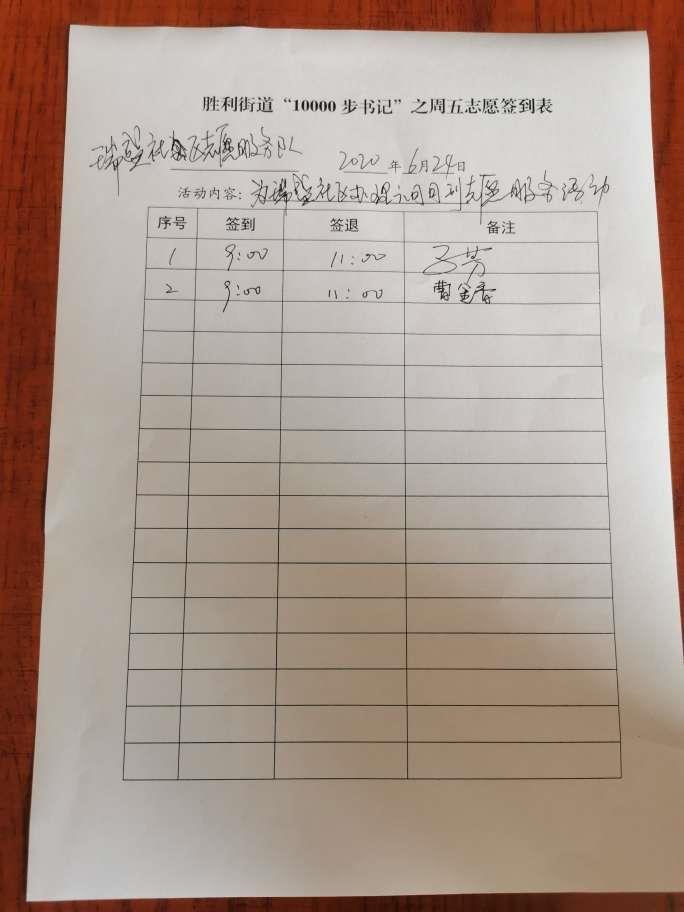 胜利街道“10000 步书记”之周五志愿签到表
社区志愿服务队 2020 年 6 月 24 日
活动内容: 为 社区办理 志愿服务活动
序号 签到 签退 备注
1 9:00 11:00 芳
2 9:00 11:00 曹金香